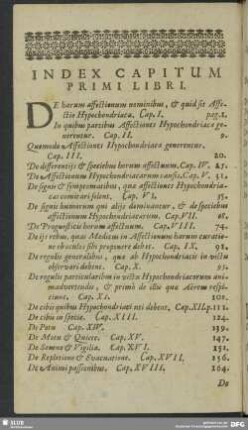 INDEX CAPITUM
PRIMI LIBRI.
DE harum affectionum nominibus, & quid sit Affe-
ctio Hypochondriaca, Cap. I. pag. 1.
In quibus partibus Affectiones Hypochondriacæ ge-
nerentur. Cap. II. 9.
Quomodo Affectiones Hypochondriacæ generentur.
Cap. III. 20.
De differentijs & speciebus harum affectuum. Cap. IV. 47.
De Affectionum Hypochondriacarum causis. Cap. V. 51.
De signis & symptomatibus, quæ affectiones Hypochondria-
cas comitari solent. Cap. VI. 55.
De signis humorum qui alijs dominantur, & de speciebus
affectionum Hypochondriacarum. Cap. VII. 68.
De Prognosticis harum affectuum. Cap. VIII. 74.
De ijs rebus, quas Medicus in Affectionum harum curatio-
ne ob oculos sibi proponere debet. Cap. IX. 91.
De regulis generalibus, quæ ab Hypochondriacis in victu
observari debent. Cap. X. 95.
De regulis particularibus in victu Hypochondriacorum ani-
madvertendis, & primò de illis quæ Aërem respi-
ciunt. Cap. XI. 101.
De cibis quibus Hypochondriaci uti debent. Cap. XII. p. 111.
De cibis in specie. Cap. XIII. 124.
De Potu Cap. XIV. 139.
De Motu & Quiete. Cap. XV. 147.
De Somno & Vigilia. Cap. XVI. 151.
De Repletione & Evacuatione. Cap. XVII. 156.
De Animi passionibus. Cap. XVIII. 164.
De
SLUB
DFG